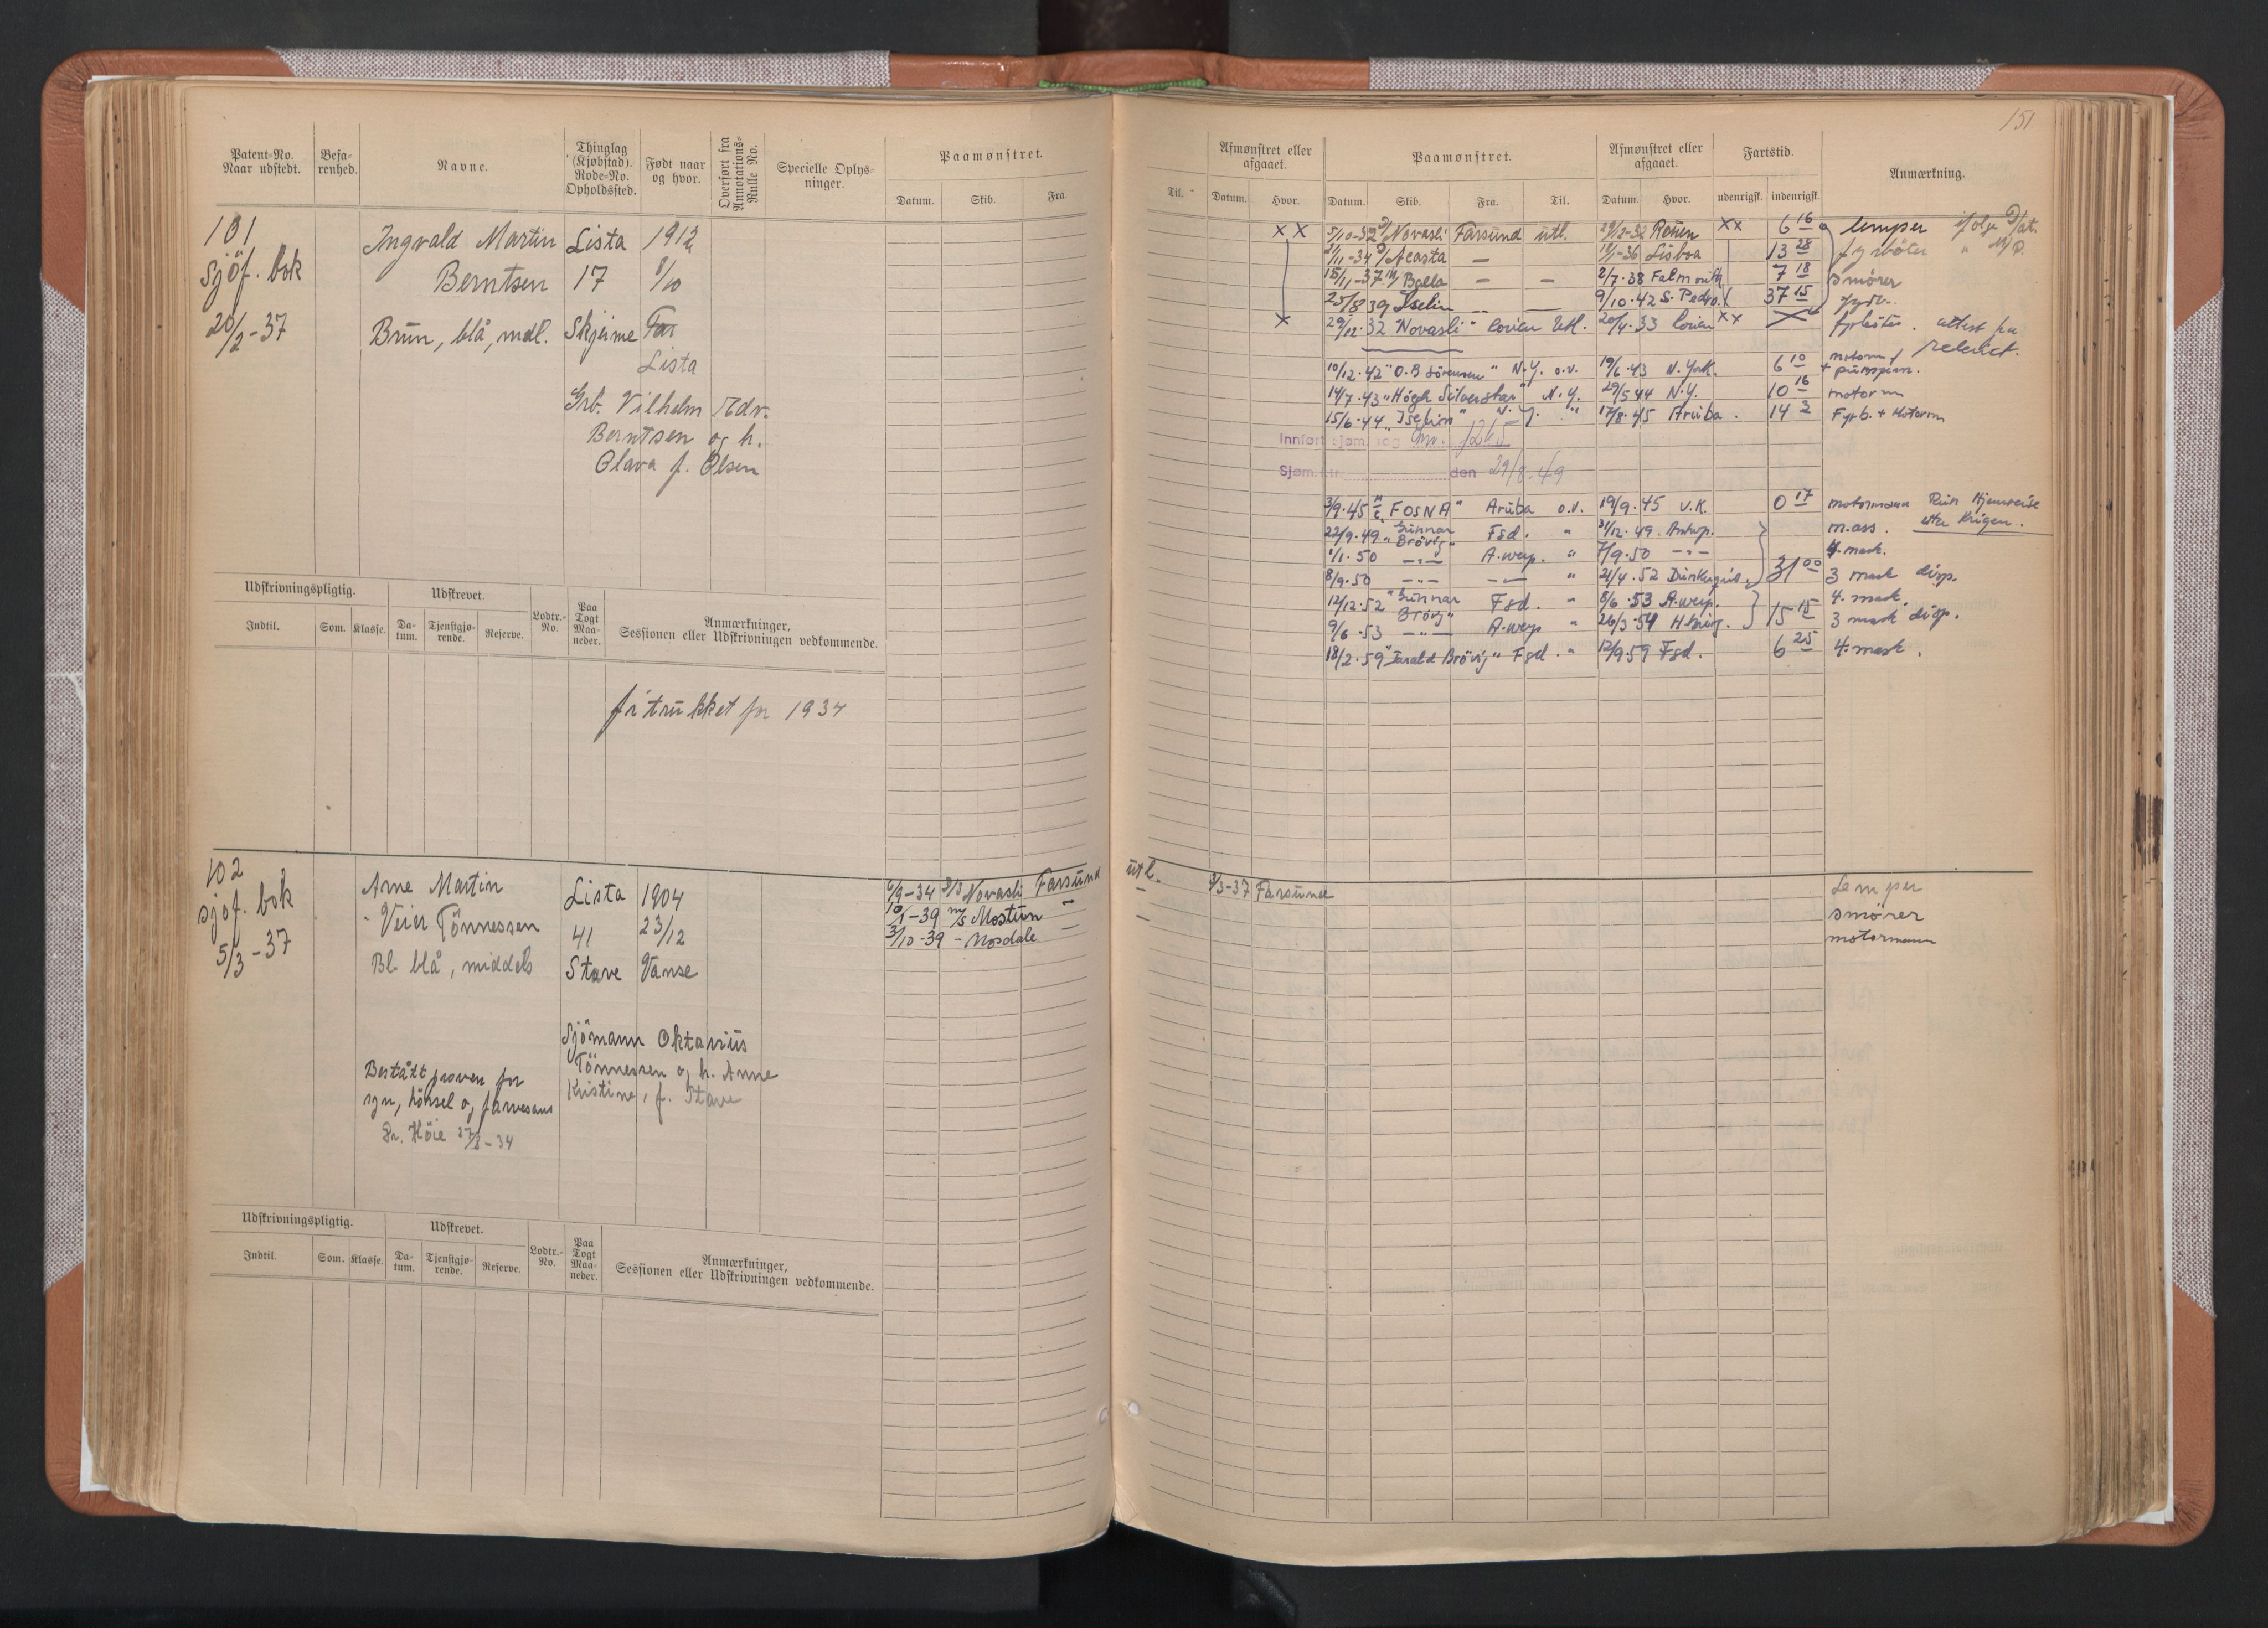 151
Patent-No.
Naar udstedt.
Befa-
renhed.
Navne.
Thinglag
(Kjøbstad).
Rode-No.
Opholdssted.
Født naar
og hvor.
Overført fra
Annotations-
Rulle No.
Specielle Oplys-
ninger.
Paamønstret.
Datum. Skib. Fra.
Til.
Afmønstret eller
afgaaet.
Datum. Hvor.
Paamønstret.
Datum. Skib. Fra. Til.
Afmønstret eller
afgaaet.
Datum. Hvor.
Fartstid.
udenrigsk. indenrigsk.
Anmærkning.
101
Sjöf. bok
20/2-37
Ingvald Martin
Berntsen
Brun, blå, mdl.
Lista
17
Skjeime
1912
8/10
Far
Lista
Grb. Vilhelm Edv.
Berntsen og h.
Olava f. Olsen
X X 5/10-32 D/ Novasli Farsund utl. Rouen XX 6 16 lemper
/11-34 D/ Acasta — /1-36 Lisboa 13 28 fyrböter
15/11-37 M/ Bella — — 2/7-38 Falmouth 7 18 smörer
25/8 39 Iselin 9/10.42 S. Pedro 37 15 fyrb.
X 29/12.32 Novasli Utl. 20/4.33 XX X fyrböter. attest fra
rederiet.
10/12.42 "O.B Sörensen" N.Y. o.v. 19/6.43 N. York. 6 10 motorm /
+ pumpem.
14/7.43 "Högh Silverstar" N.Y. 29/5 44 N.Y. 10 16 motorm
15/6.44 "Iselin" N.Y. " 17/8.45 Aruba. 14 2 Fyrb. + Motorm
Innført sjøm. 1265
Sjøm. den 29/8.49
3/9.45 "FOSNA" Aruba o.v. 19/9.45 U.K. 0 17 motormann Rein Hjemreise
etter Krigen.
22/9.49 "Gunnar
Brövig" Fsd. " 31/12.49 Antwp. m.ass.
1/1.50 —"— A.werp. " 7/9.50 —"— 4. mask.
8/9.50 —"— —"— " 21/4.52 Dunkerque. 31 00 3 mask disp.
12/12.52 "Gunnar
Brövig" Fsd. " 8/6.53 A.werp. 4. mask.
9/6.53 —"— A.werp " 26/3.54 Hburg. 15 15 3 mask disp.
18/2.59 "Farald Brövig" Fsd. " 12/9.59 Fsd. 6 25 4. mask.
Udskrivningspligtig.
Indtil. Som. Klasse.
Udskrevet.
Da-
tum.
Tjenstgjø-
rende.
Reserve.
Lodtr.-
No.
Paa
Togt
Maa-
neder.
Anmærkninger,
Sessionen eller Udskrivningen vedkommende.
fritrukket for 1934
102
sjöf. bok
5/3-37
Arne Martin
Veier Tönnessen
Bl. blå, middels
Lista
41
Stave
1904
23/12
Vanse
6/9-34 D/S Novasli Farsund utl. 3/3-37 Farsund Lemper
10/1-39 m/s Mostun — — smörer
3/10-39 - Mosdale — — motormann
Sjömann Oktavius
Tönnessen og h. Anne
Kristine, f. Stave
Bestått pröven for
syn, hörsel og farvesans
Dr. Höie 27/8-34
Udskrivningspligtig.
Indtil. Som. Klasse.
Udskrevet.
Da-
tum.
Tjenstgjø-
rende.
Reserve.
Lodtr.-
No.
Paa
Togt
Maa-
neder.
Anmærkninger,
Sessionen eller Udskrivningen vedkommende.